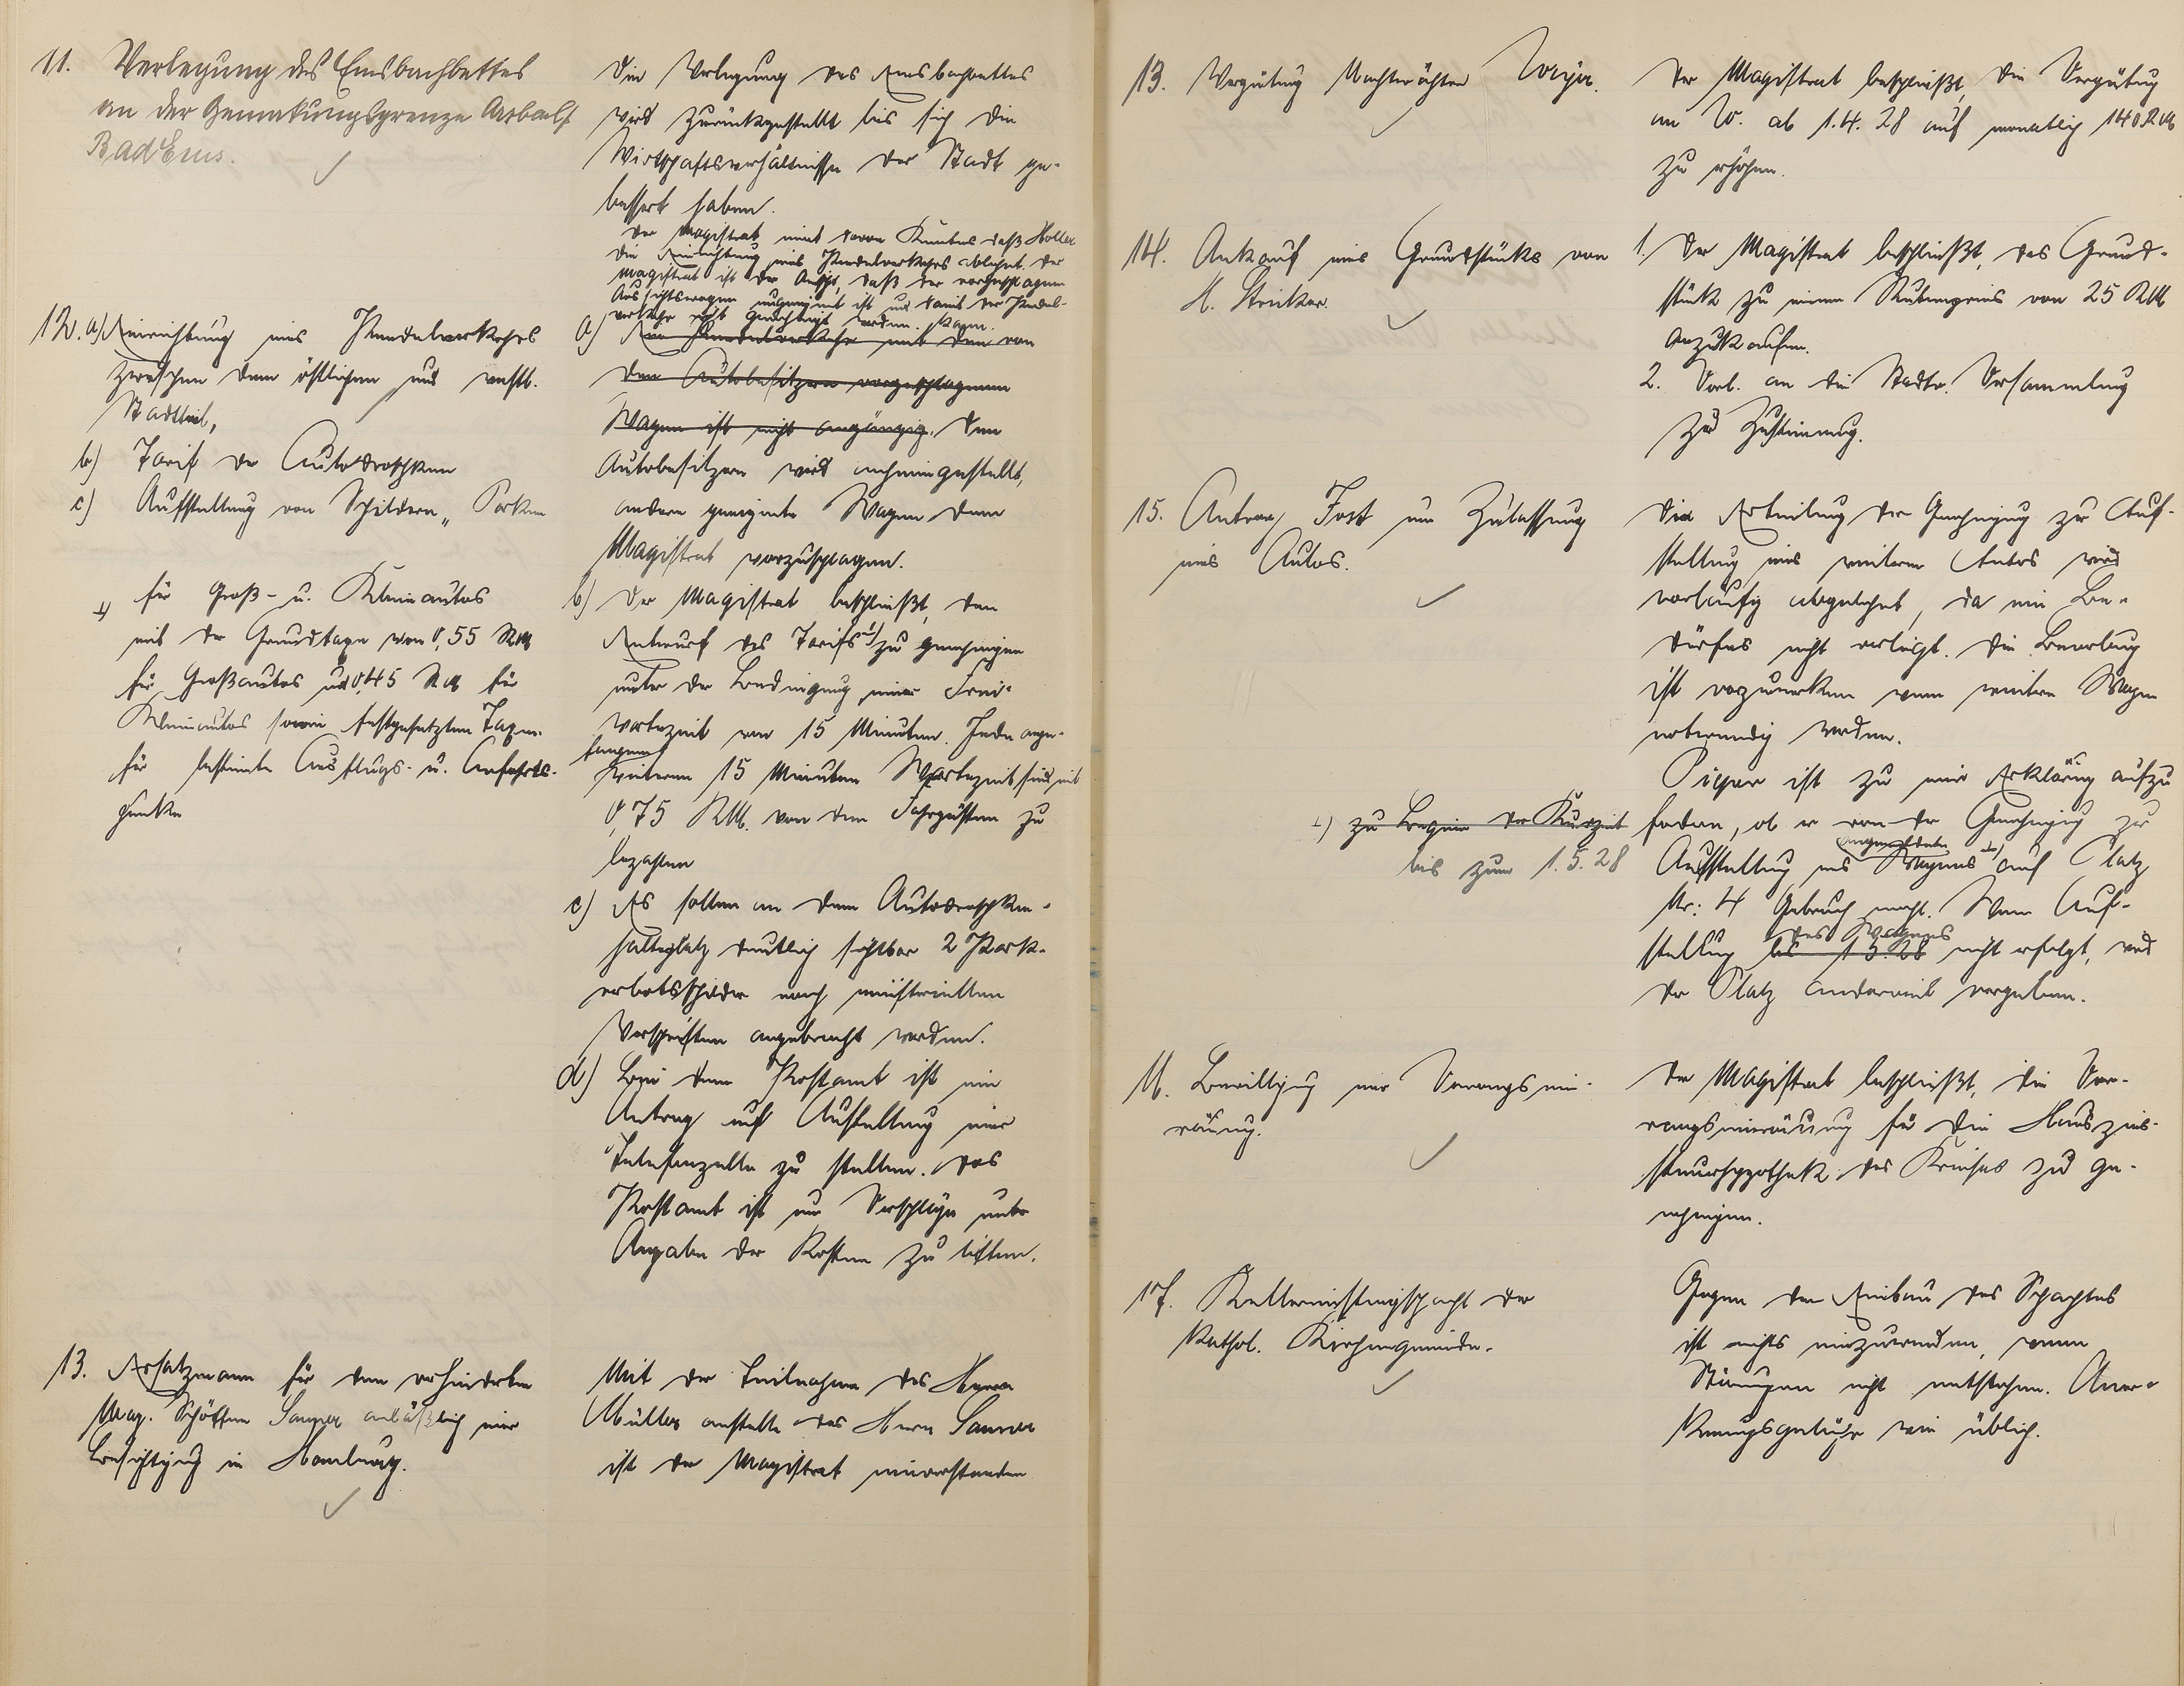 11. Verlegung des Emsbachbettes
an der Gemarkungsgrenze Arzbach/
Bad Ems.
Die Verlegung des Emsbachbettes
wird zurückgestellt bis sich die
Wirtschaftsverhältnisse der Stadt ge-
bessert haben.
Der Magistrat nimmt davon Kenntnis daß Holler
die Einrichtung eines Pendelverkehrs ablehnt. Der
Magistrat ist der Ansicht, daß der vorgeschlagene
Aussichtswagen ungeeignet ist und damit der Pendel-
verkehr nicht genehmigt werden kann.
12. a) Einrichtung eines Pendelverkehrs
zwischen dem östlichen und westl.
Stadtteil,
b) Tarif der Autodroschken
c) Aufstellung von Schildern „Parken
1) für Groß- u. Kleinautos
mit der Grundtaxe von 0,55 RM
für Großautos und 0,45 RM für
Kleinautos sowie festgesetzten Taxen
für bestimmte Ausflugs- u. Anfahrts-
punkte
a) Ein Pendelverkehr mit den von
den Autobesitzern vorgeschlagenen
Wagen ist nicht angängig. Den
Autobesitzern wird anheimgestellt,
andere geeignete Wagen dem
Magistrat vorzuschlagen.
b) Der Magistrat beschließt, den
Entwurf des Tarifs 1) zu genehmigen
unter der Bedingung einer Frei-
wartezeit von 15 Minuten. Jede ange-
fangenen
weiteren 15 Minuten Wartezeit sind mit
0,75 RM. von den Fahrgästen zu
bezahlen
c) Es sollen an dem Autodroschken-
halteplatz deutlich sichtbar 2 Park-
verbotsschilder nach ministeriellen
Vorschriften angebracht werden.
d) Bei dem Postamt ist ein
Antrag auf Aufstellung einer
Telefonzelle zu stellen. Das
Postamt ist um Vorschläge unter
Angabe der Kosten zu bitten.
13. Ersatzmann für den verhinderten
Mag. Schöffen Sauer anläßlich einer
Besichtigung in Homburg.
Mit der Teilnahme des Herrn
Müller anstelle des Herrn Sauer
ist der Magistrat einverstanden
13. Vergütung Nachtwächter
Der Magistrat beschließt, die Vergütung
an W. ab 1.4.28 auf monatlich 140 RM
zu erhöhen.
14. Ankauf eines Grundstücks von
H. Stricker.
1. Der Magistrat beschließt, das Grund-
stück zu einem Rutenpreis von 25 RM
anzukaufen.
2. Vorl. an die Stadtv. Versammlung
zur Zustimmung.
15. Antrag Jost um Zulassung
eines Autos.
Die Erteilung der Genehmigung zur Auf-
stellung eines weiteren Autos wird
vorläufig abgelehnt, da ein Be-
dürfnis nicht vorliegt. Die Bewerbung
ist vorzumerken wenn weitere Wagen
notwendig werden.
ist zu einer Erklärung aufzu
fordern, ob er von der Genehmigung zur
angemeldeten
Aufstellung eines Wagens 1) auf Platz
Nr: 4 Gebrauch macht. Wenn Auf-
des Wagens
stellung bis 1.5.28 nicht erfolgt, wird
der Platz anderweit vergeben.
1) zu Beginn der Kurzeit
bis zum 1.5.28
16. Bewilligung einer Vorrangsein-
räumung.
Der Magistrat beschließt, die Vor-
rangseinräumung für die Hauszins-
steuerhypothek des Kreises zu ge-
nehmigen.
17. Kellereinsteigschacht der
Kathol. Kirchengemeinde.
Gegen den Einbau des Schachtes
ist nichts einzuwenden, wenn
Störungen nicht entstehen. Aner-
kennungsgebühr wie üblich.